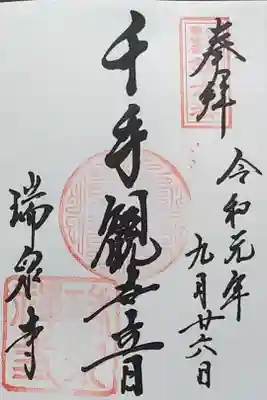 奉拝
令和元年
九月廿六日
千手観世音
瑞泉寺